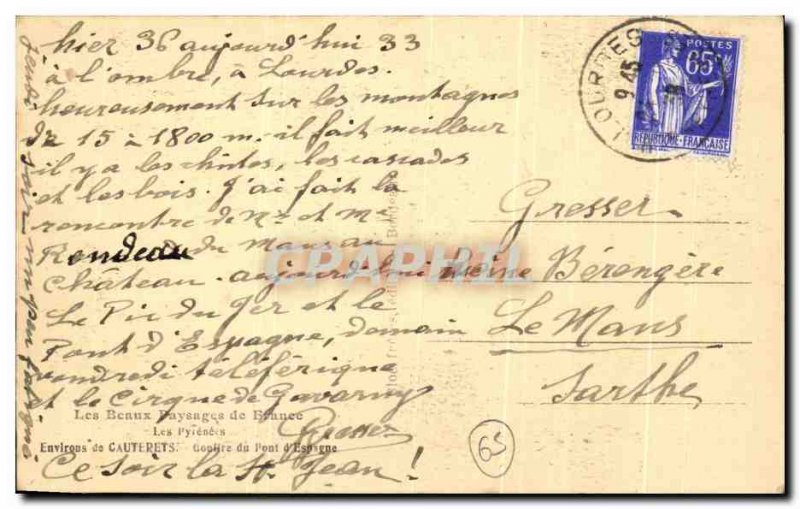 hier 36 aujourd'hui 33
à l'ombre, à Lourdes.
heureusement sur les montagnes
de 15 à 1800 m. il fait meilleur
il y a les chutes, les cascades
et les bois. J'ai fait la
rencontre de Mr et Me
Rondeau du Mans au
château. aujourd'hui
Le Pic du Ger et le
Pont d'Espagne, demain
vendredi téléférique
et le Cirque de Gavarny
Gresser
Ce soir la St. Jean!
Les Beaux Paysages de France
Les Pyrénées
Environs de CAUTERETS. Gouffre du Pont d'Espagne
LOURDES
9 45
POSTES
65
REPUBLIQUE FRANÇAISE
Gresser
reine Bérengère
Le Mans
Sarthe
CAPHIL
65